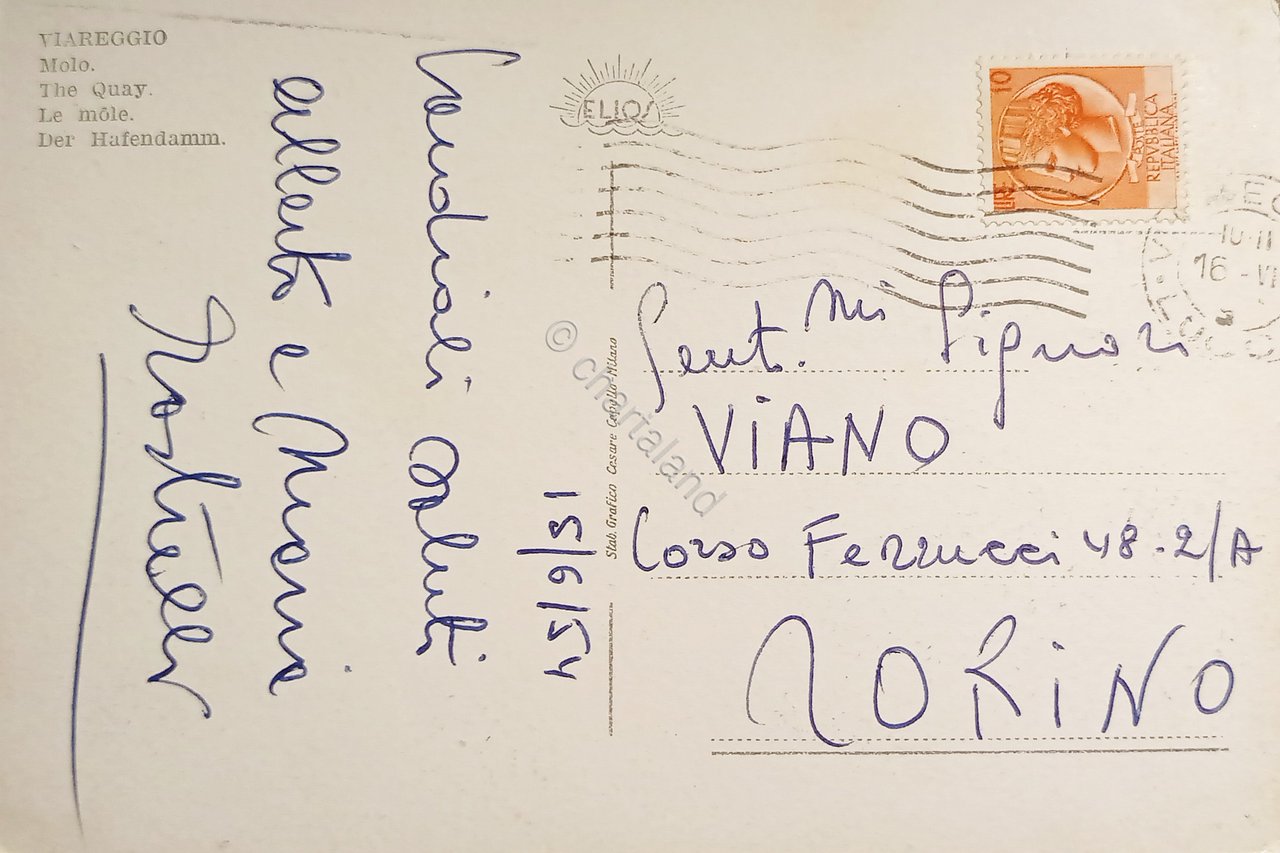 VIAREGGIO
Molo.
The Quay.
Le môle.
Der Hafendamm.
ELIOS
10
LIRE
POSTE
REPVBBLICA
ITALIANA
16 - VI
Stab. Grafico Cesare Capello-Milano
© chartaland
15/6/54
Cordiali saluti
e
Gent.mi Signori
VIANO
Corso Ferrucci 48-2/A
TORINO